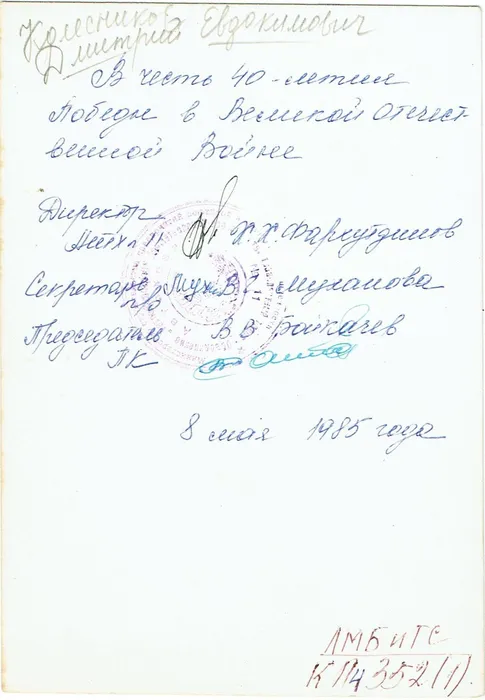 Колесников
Дмитрий Евдокимович
В честь 40-летия
Победы в Великой Отечест-
венной Войне
Директор
Х.Х. Фархутдинов
Секретарь Мух В. Муханова
п/о
Председатель В.В. Бойкачев
ПК
8 мая 1985 года
ЛМБиТС
КП4352(1).